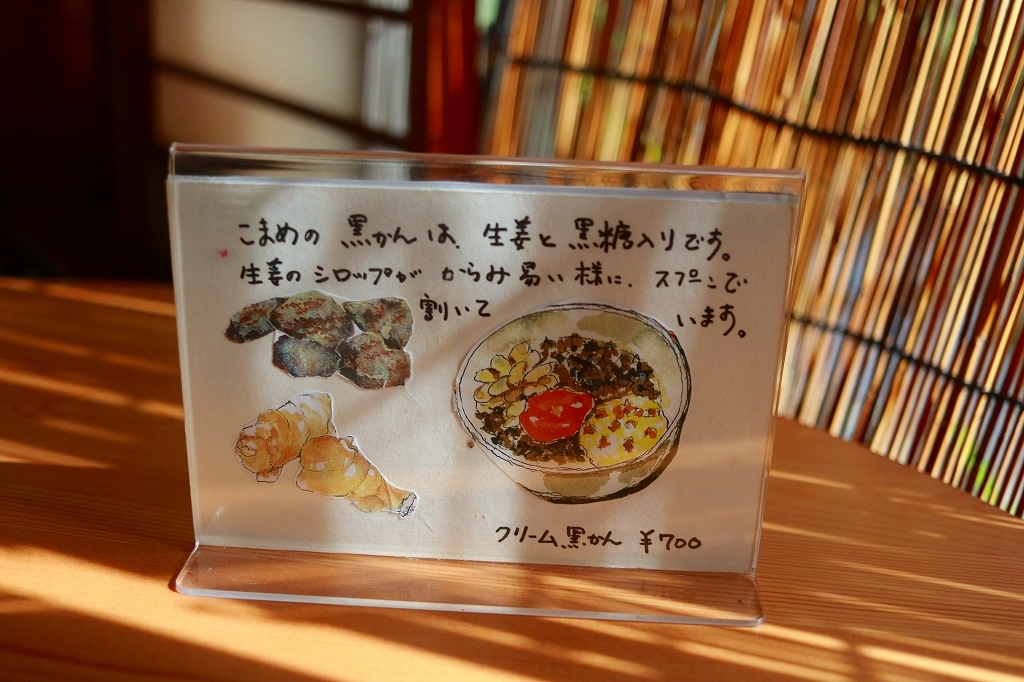 こまめの 黒かんは、生姜と黒糖入りです。
生姜のシロップが からみ易い様に、スプーンで
割いて います。
クリーム黒かん ¥700